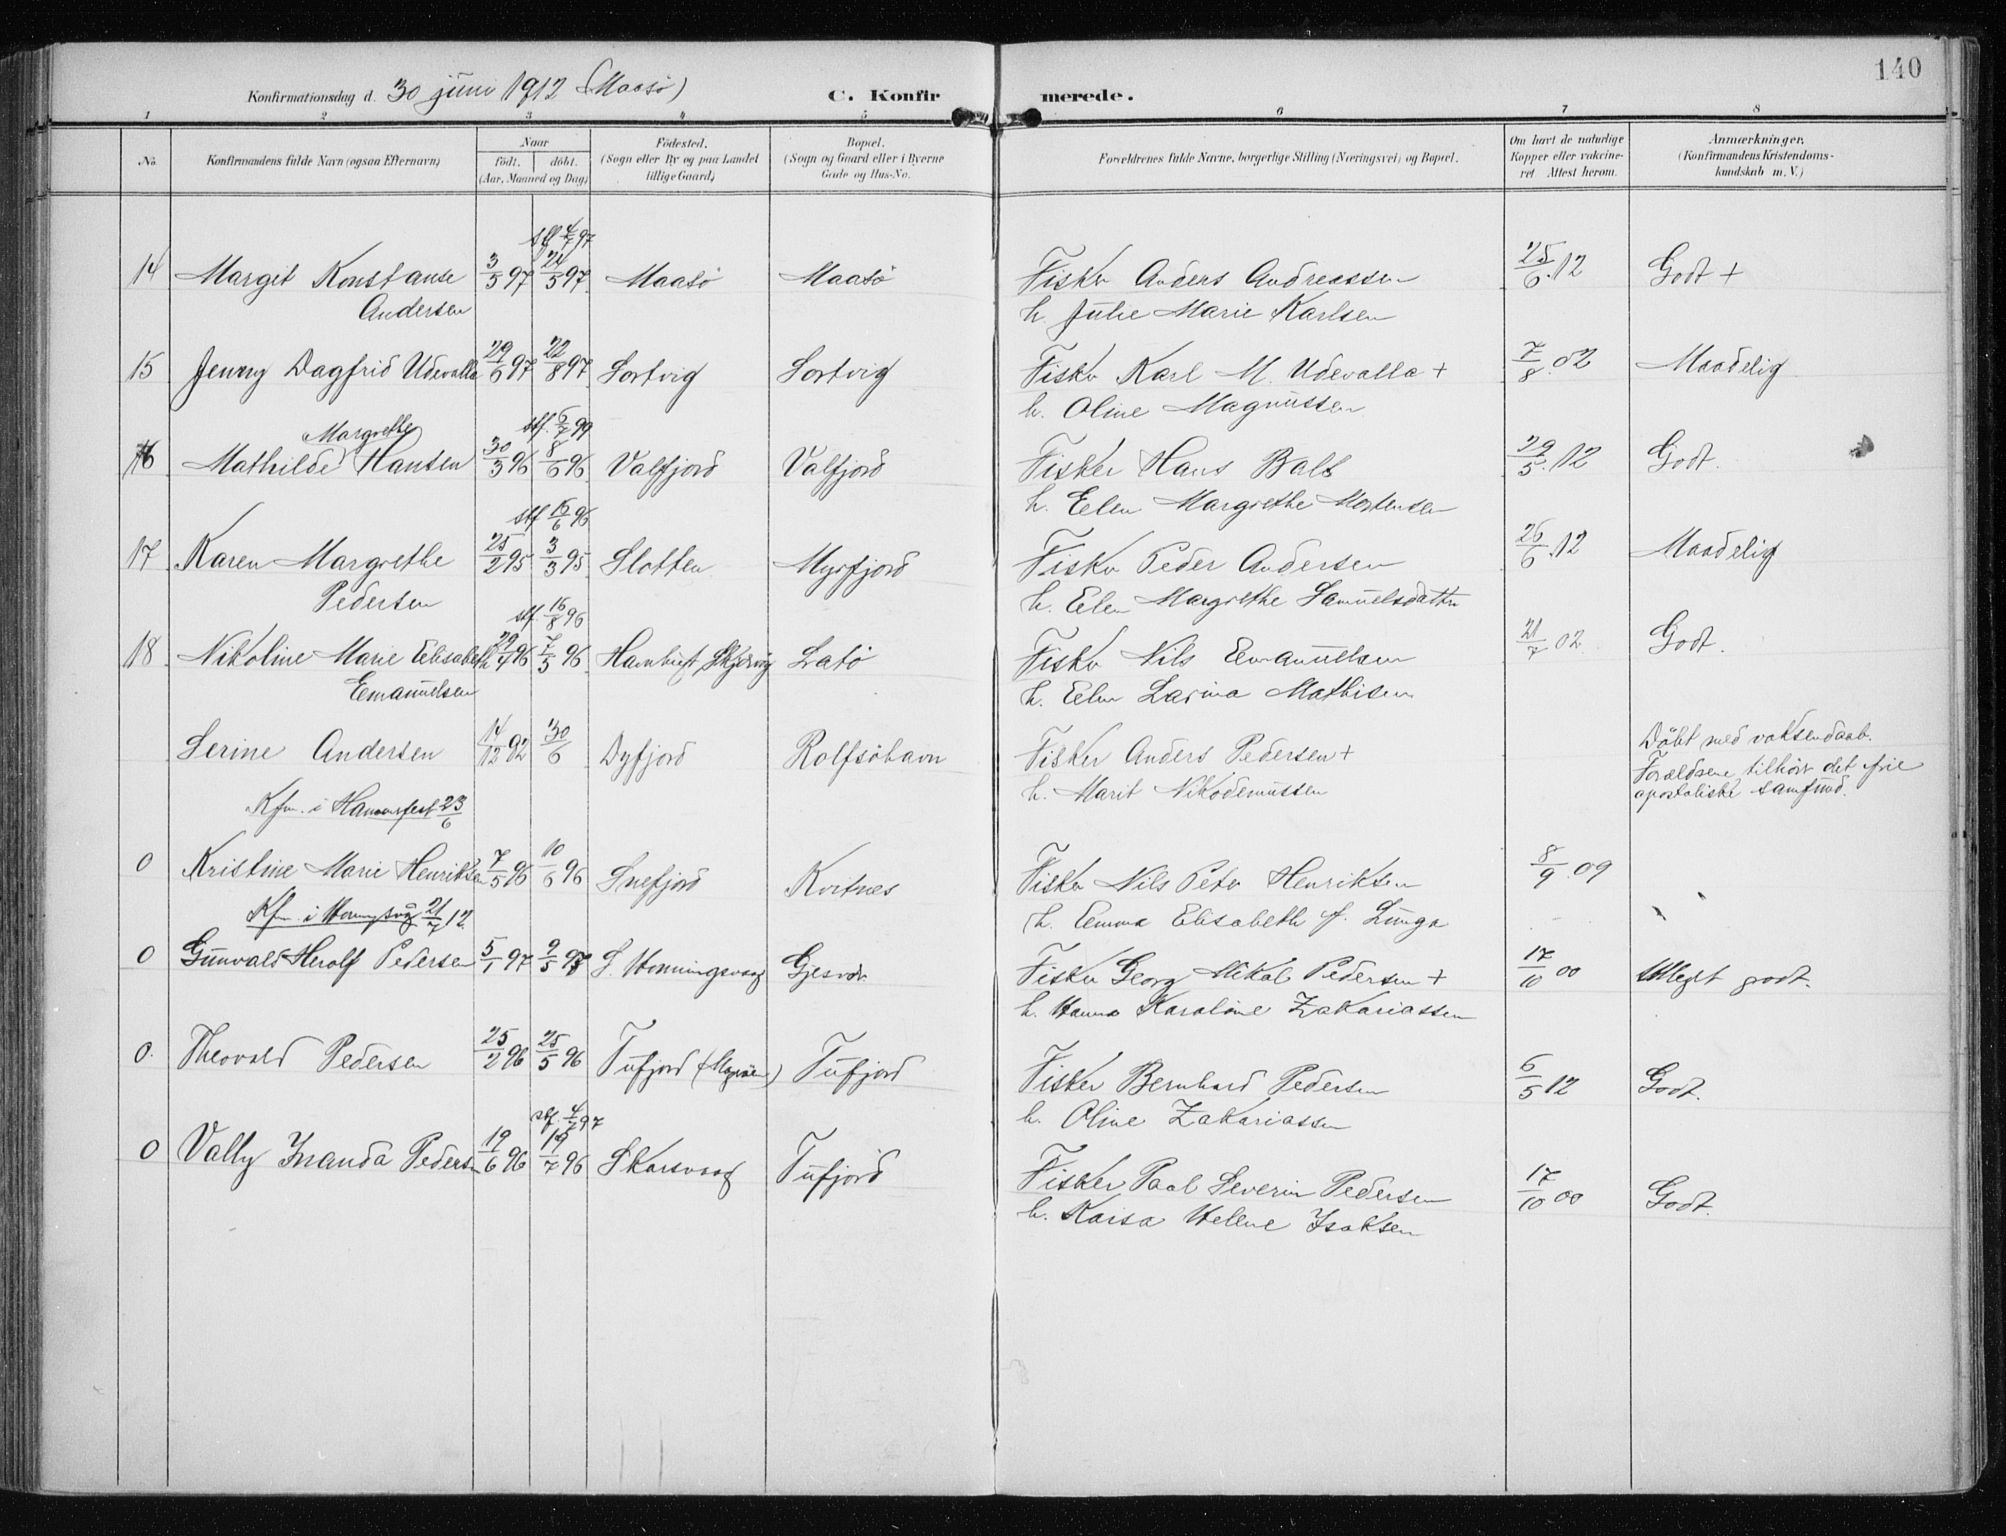 140
Konfirmationsdag d. 30 juni 1912 (Maasø)
C. Konfirmerede.
1 2 3 4 5 6 7 8
No.
Konfirmandens fulde Navn (ogsaa Efternavn)
Naar
født. døbt.
(Aar, Maaned og Dag)
Fødested.
(Sogn eller By og paa Landet
tillige Gaard)
Bopæl.
(Sogn og Gaard eller i Byerne
Gade og Hus-No.
Forældrenes fulde Navne, borgerlige Stilling (Næringsvei) og Bopæl.
Om havt de naturlige
Kopper eller vakcine-
ret Attest herom.
Anmærkninger.
(Konfirmandens Kristendoms-
kundskab m. V.)
stf 4/7 97
14 Margit Konstanse 3/5 97 24/5 97 Maasö Maasö Fisker Anders Andreassen 25/6.12 Godt +
Andersen h. Julie Marie Karlsen
15 Jenny Dagfrid Udevalla 29/6 97 22/8 97 Sortvig Sortvig Fisker Karl M. Udevalla + 7/8.02 Maadelig
h. Oline Magnussen
Margrethe stf. 6/7 99
16 Mathilde Hansen 30/3 96 8/6 96 Valfjord Valfjord Fisker Hans Balt 29/5.12 Godt.
h. Elen Margrethe Mortensen
stf 16/6 96
17 Karen Margrethe 25/2 95 3/3 95 Slotten Myrfjord Fisker Peder Andersen 26/6.12 Maadelig
Pedersen h. Elen Margrethe Samuelsdatter
stf. 16/8 96
18 Nikoline Marie Elisabeth 29/4 96 7/5 96 Skjervig Latö Fisker Nils Emanuelsen 21/7 02. Godt.
Emanuelsen h. Elen Larina Mathisen
Serine Andersen 14/12 92 30/6 Dyfjord Rolfsöhavn Fisker Anders Pedersen + Döbt med voksendaab.
h. Marit Nikodemussen Forældrene tilhör det frie
apostoliske samfund.
Kfm. i Hammerfest 23/6
0 Kristine Marie Henriksen 7/5 96 10/6 96 Snefjord Kvitnes Fisker Nils Peter Henriksen 8/9 09
Kfm. i Honningsvåg 21/7 12. h. Emma Elisabeth f. Lunga
0 Gunvald Herolf Pedersen 5/1 97 9/5 97 S. Honningsvaag Gjesvær Fisker Georg Mikal Pedersen + 17/10 00 Meget godt.
h. Hanna Karoline Zakariassen
0. Theovald Pedersen 25/2 96 25/5 96 Tufjord Tufjord Fisker Bernhard Pedersen 6/5 12 Godt.
h. Oline Zakariassen
stf. 4/7 97
0 Vally Inanda Pedersen 19/6 96 19/7 96 Skarsvaag Tufjord Fisker Paal Severin Pedersen 17/10 00 Godt.
h. Kaisa Helene Isaksen